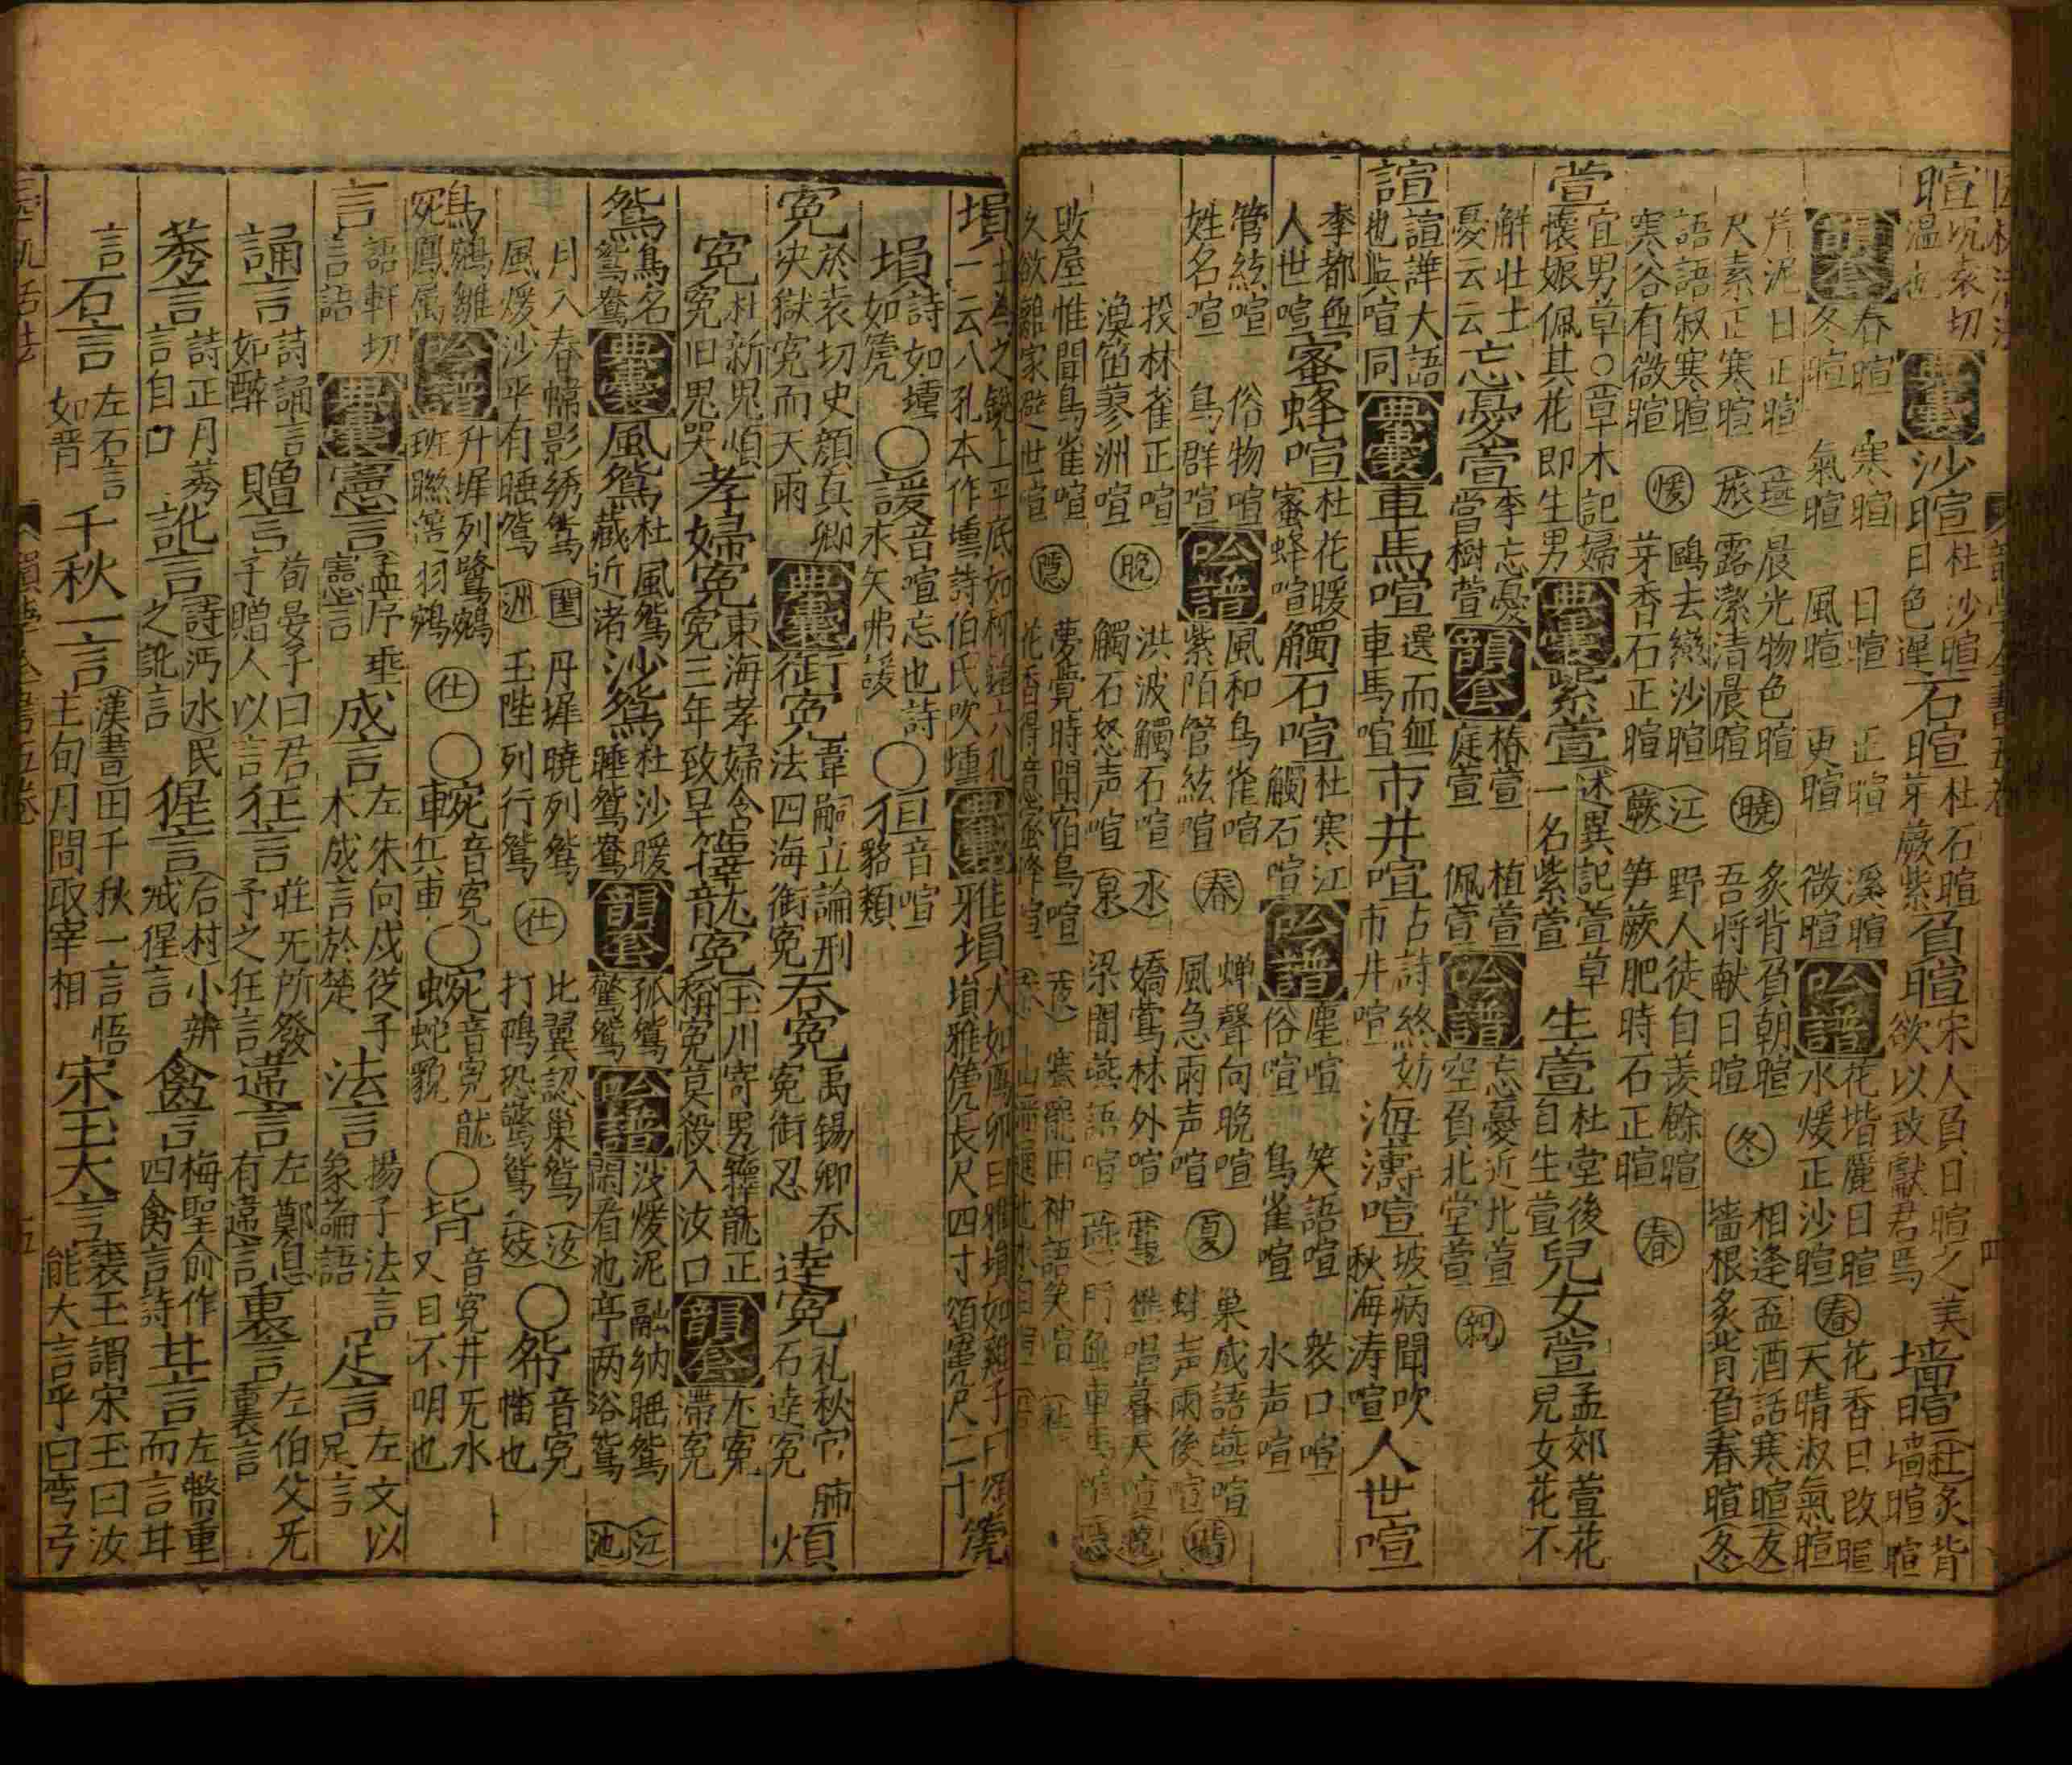 暄 况袁切 温也 典囊 沙暄 杜沙暄日色遲 石暄 杜石暄芽蕨紫 負暄 宋人負日暄之美欲以致獻君焉 墙暄 杜炙背墙暄暄
韻套 春暄 冬暄 寒暄 氣暄 日暄 風暄 正暄 更暄 溪暄 微暄 吟譜 花堦麗日暄 水煖正沙暄 春 花香日改暄 天晴淑氣暄
芹泥日正暄 尺素正寒暄 燕 旅 晨光物色暄 露潔清晨暄 曉 炙背負朝暄 吾将献日暄 冬 相逢盃酒話寒暄 墻根炙背負春暄 友 冬
語語叙寒暄 寒谷有微暄 煖 鷗去巒沙暄 芽香石正暄 江 蕨 野人徒自羡餘暄 笋蕨肥時石正暄 春
萱 宜男草○草木記婦懷娠佩其花即生男 典囊 紫萱 述異記萱草一名紫萱 生萱 杜堂後自生萱 兒女萱 孟郊萱花兒女花不
解壮士憂云云 忘憂萱 李忘憂當樹萱 韻套 椿萱 庭萱 植萱 佩萱 吟譜 忘憂近北萱 空負北堂萱 親
諠 諠譁大語也與喧同 典囊 車馬喧 選而無車馬喧 市井喧 古詩終妨市井喧 海濤喧 坡病聞吹秋海涛喧 人世喧
李都無人世喧 蜜蜂喧 杜花暖蜜蜂喧 觸石喧 杜寒江觸石喧 吟譜 塵喧 俗喧 笑語喧 鳥雀喧 衆口喧 水声喧
管絃喧 姓名喧 俗物喧 鳥群喧 吟譜 風和鳥雀喧 紫陌管絃喧 春 蝉聲向晚喧 風急雨声喧 夏 巢成語燕喧 蛙声雨後喧
投林雀正喧 漁笛蓼洲喧 晚 洪波觸石喧 觸石怒声喧 水 泉 嬌鶯林外喧 梁間燕語喧 鶯 燕
敗屋惟聞鳥雀喧 久欲離家避世喧 隱 夢覺時聞宿鳥喧 夜
塤 土為之鋭上平底如 六孔一云八孔本作壎詩伯氏吹壎 典囊 雅塤 大如鳳卵曰雅塤如雞子曰頌塤雅箎長尺四寸頌箎尺二寸 箎
塤 詩如壎如箎 ○諼 音喧忘也詩永矢弗諼 ○狟 音喧貉類
冤 於袁切史顔真卿决獄寃而天雨 典囊 銜冤 韋嗣立論刑法四海銜冤 吞冤 禹锡卿吞冤銜忍 逹冤 礼秋官肺石逹冤 煩
冤 杜新鬼煩冤旧鬼哭 孝婦冤 東海孝婦含冤三年致旱 籜龍冤 玉川寄男籜龍正稱冤莫殺入汝口 韻套 尢冤 滯冤
鴛 鳥名鴛鴦 典囊 風鴛 杜風鴛藏近渚 沙鴛 杜沙暖睡鴛鴦 韻套 孤鴛 驚鴛 吟譜 沙煖泥融纳睡鴛 閑看池亭两浴鴛 江 池
月入春幃影綉鴛 風煖沙平有睡鴛 閨 洲 丹墀曉列鴛 玉陛列行鴛 仕 比翼認巢鴛 打鴨恐驚鴛 妓 ○帤 音冤幡也
鵷 鵷雛鳳属 吟譜 升墀列鷺鵷 班聯簉羽鵷 仕 ○䡝 音冤兵車 ○蜿 音冤龍蛇貌 ○眢 音冤井旡水又目不明也
言 語軒切言語 典囊 憲言 孟序垂憲言 成言 左朱向戍従子木成言於楚 法言 揚子法言象論語 足言 左文以足言
誦言 詩誦言如醉 贈言 荀晏子曰君子贈人以言 狂言 莊旡所發予之狂言 違言 左鄭息有違言 重言 左伯父旡裏言
莠言 詩正月莠言自口 訛言 詩沔水民之訛言 猩言 石村小辨戒猩言 禽言 梅聖俞作四禽言詩 甘言 左幣重而言甘
言 石言 左石言如晋 千秋一言 漢書田千秋一言悟主旬月間取宰相 宋玉大言 襄王謂宋玉曰汝能大言乎曰弯弓